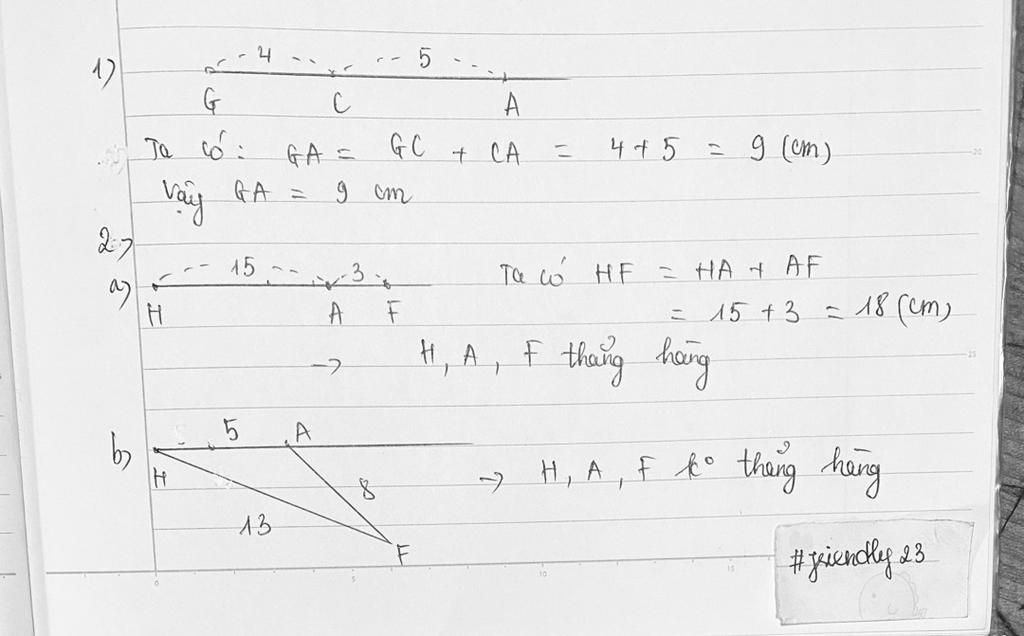 1) 4 5
G C A
Ta có: GA = GC + CA = 4 + 5 = 9 (cm)
Vậy GA = 9 cm
2)
a) 15 3 Ta có HF = HA + AF
H A F = 15 + 3 = 18 (cm)
→ H, A, F thẳng hàng
b) 5 A
H 8 → H, A, F k° thẳng hàng
13
F
#friendly23
20
25
0 5 10 15